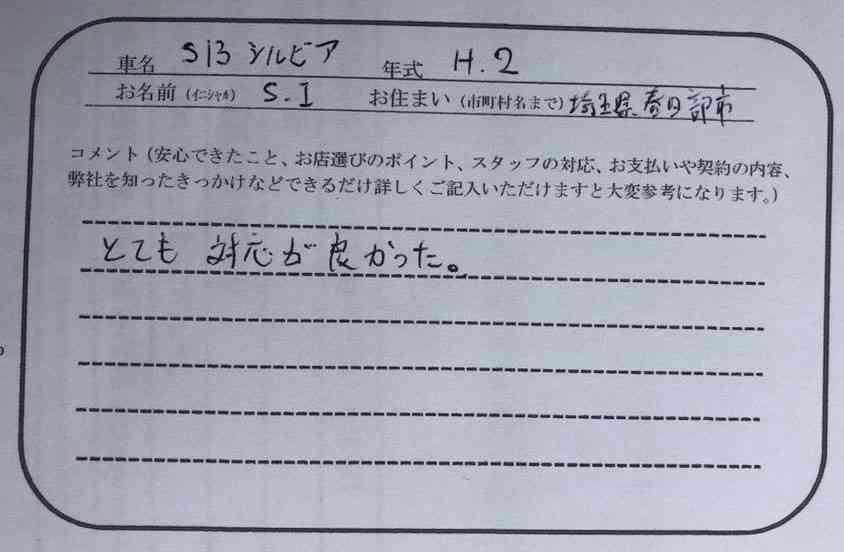 車名 S13 シルビア 年式 H.2
お名前(イニシャル) S.I お住まい(市町村名まで)埼玉県春日部市
コメント(安心できたこと、お店選びのポイント、スタッフの対応、お支払いや契約の内容、
弊社を知ったきっかけなどできるだけ詳しくご記入いただけますと大変参考になります。)
とても 対応が良かった。